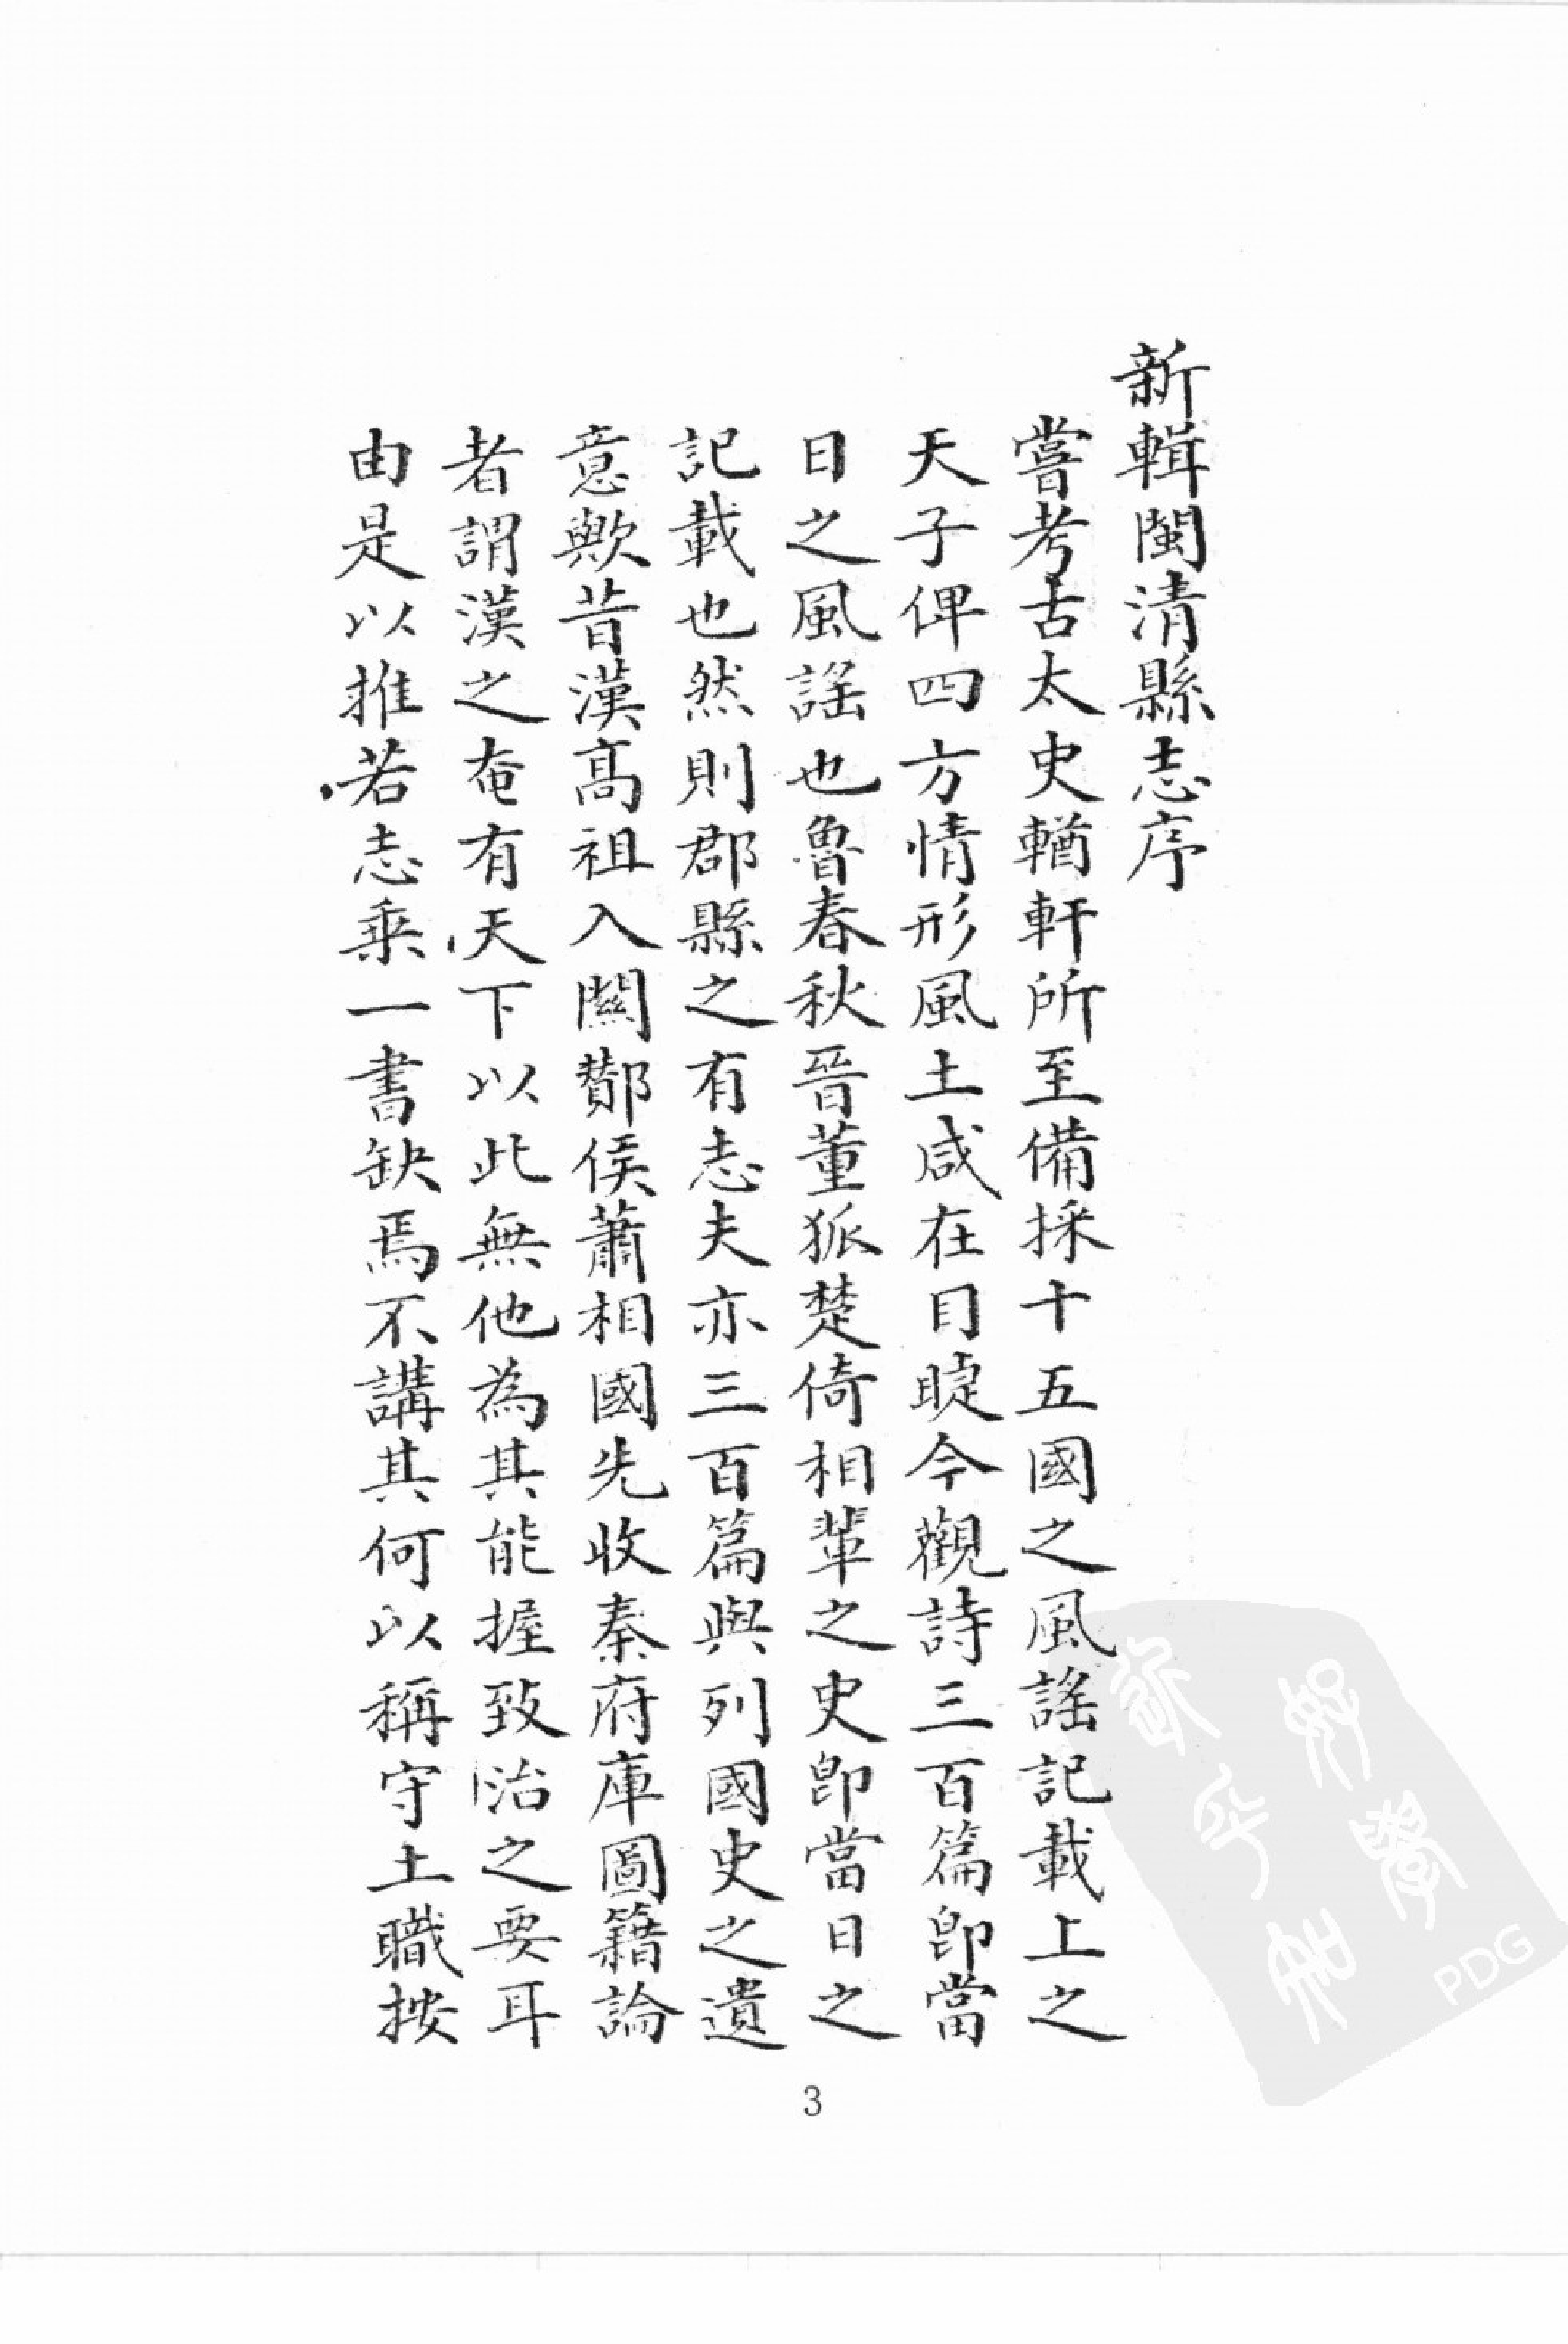 新輯閩清縣志序
嘗考古太史輶軒所至備採十五國之風謠記載上之
天子俾四方情形風土咸在目睫今觀詩三百篇卽當
日之風謠也魯春秋晉董狐楚倚相輩之史卽當日之
記載也然則郡縣之有志夫亦三百篇與列國史之遺
意歟昔漢高祖入關酇侯蕭相國先收秦府庫圖籍論
者謂漢之奄有天下以此無他為其能握致治之要耳
由是以推若志乘一書缺焉不講其何以稱守土職按
3
PDG